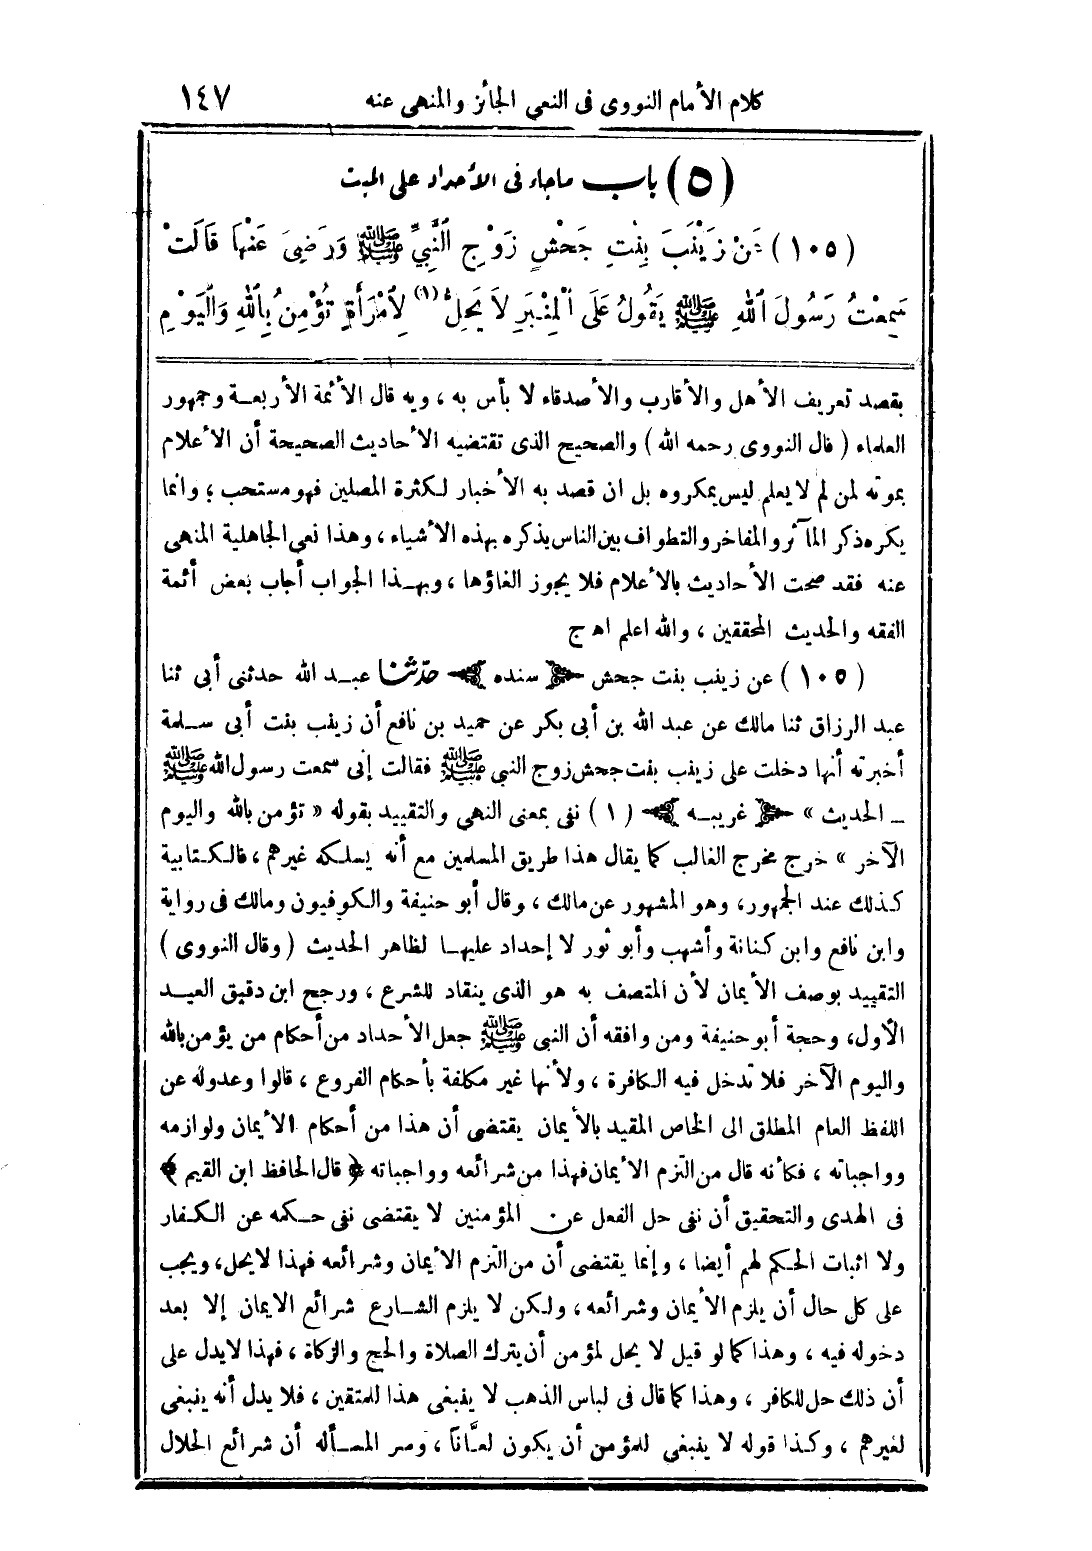 كلام الأمام النووى فى النعي الجائز والمنهى عنه ١٤٧
(٥) باب ماجاء فى الأحداد على الميت
(١٠٥) عَنْ زَيْنَبَ بِنْتِ جَحْشٍ زَوْجِ النَّبِيِّ ﷺ وَرَضِىَ عَنْهَا قَالَتْ
سَمِعْتُ رَسُولَ اللهِ ﷺ يَقُولُ عَلَى الْمِنْبَرِ لاَ يَحِلُّ (١) لِأَمْرَأَةٍ تُؤْمِنُ بِاللهِ وَالْيَوْمِ
بقصد تعريف الأهل والأقارب والأصدقاء لا بأس به ، وبه قال الأئمة الأربعـة وجمهور
العلماء ( قال النووى رحمه الله ) والصحيح الذى تقتضيه الأحاديث الصحيحة أن الأعلام
بموته لمن لم لا يعلم ليس بمكروه بل ان قصد به الأخبار لكثرة المصلين فهو مستحب ؛ وانما
يكره ذكر المآثر والمفاخر والتطواف بين الناس يذكره بهذه الأشياء ، وهذا نعي الجاهلية المنهى
عنه فقد صحت الأحاديث بالأعلام فلا يجوز الغاؤها ، وبهـذا الجواب أجاب بعض أئمة
الفقه والحديث المحققين ، والله اعلم اهـ ج
(١٠٥) عن زينب بنت جحش ﴿ سنده ﴾ حدّثنا عبـد الله حدثنى أبى ثنا
عبد الرزاق ثنا مالك عن عبد الله بن أبى بكر عن حميد بن نافع أن زينب بنت أبى سـلمة
أخبرته أنها دخلت على زينب بنت جحش زوج النبي ﷺ فقالت إنى سمعت رسول الله ﷺ
ـ الحديث » ﴿ غريبـه ﴾ (١) نفى بمعنى النهي والتقييد بقوله « تؤمن بالله واليوم
الآخر » خرج مخرج الغالب كما يقال هذا طريق المسلمين مع أنه يسلكه غيرهم ، فالكتابية
كذلك عند الجمهور، وهو المشهور عن مالك ، وقال أبو حنيفة والكوفيون ومالك فى رواية
وابن نافع وابن كنانة وأشهب وأبو ثور لا إحداد عليهـا لظاهر الحديث ( وقال النووى )
التقييد بوصف الأيمان لأن المتصف به هو الذى ينقاد للشرع ، ورجح ابن دقيق العيـد
الأول، وحجة أبو حنيفة ومن وافقه أن النبى ﷺ جعل الأحداد من أحكام من يؤمن بالله
واليوم الآخر فلا تدخل فيه الكافرة ، ولأنها غير مكلفة بأحكام الفروع ، قالوا وعدوله عن
اللفظ العام المطلق الى الخاص المقيد بالأيمان يقتضى أن هذا من أحكام الأيمان ولوازمه
وواجباته ، فكأنه قال من التزم الأيمان فهذا من شرائعه وواجباته ﴿ قال الحافظ ابن القيم ﴾
فى الهدى والتحقيق أن نفى حل الفعل عن المؤمنين لا يقتضى نفى حـكمه عن الكـفار
ولا اثبات الحكـم لهم أيضا ، وإنما يقتضى أن من التزم الأيمان وشرائعه فهذا لا يحل، ويجب
على كل حال أن يلزم الأيمان وشرائعه ، ولـكن لا يلزم الشـارع شرائع الايمان إلا بعد
دخوله فيه ، وهذا كما لو قيل لا يحل لمؤمن أن يترك الصلاة والحج والزكاة ، فهذا لا يدل على
أن ذلك حل للكافر ، وهذا كما قال فى لباس الذهب لا ينبغى هذا للمتقين ، فلا يدل أنه ينبغى
لغيرهم ، وكـذا قوله لا ينبغي للمؤمن أن يكون لعَّاناً ، وسر المسـأله أن شرائع الحلال